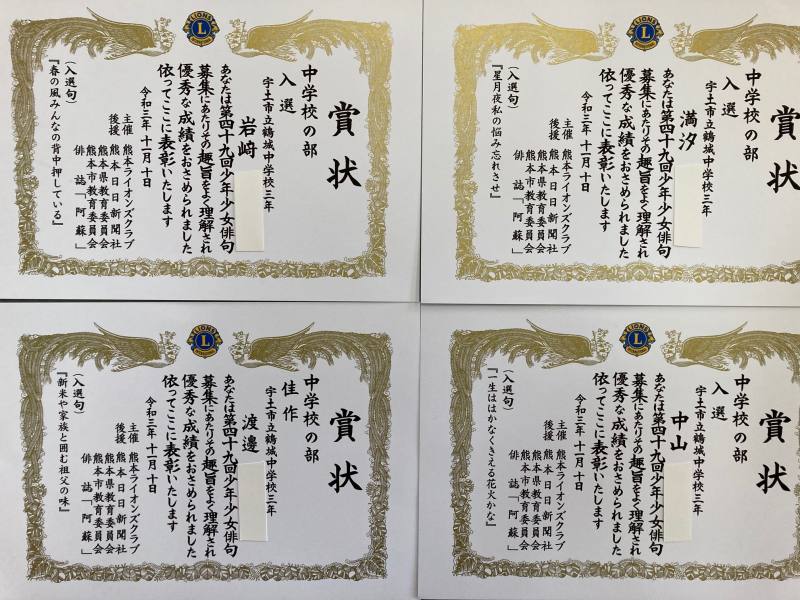 賞状
中学校の部
入選
宇土市立鶴城中学校三年
岩﨑
あなたは第四十九回少年少女俳句
募集にあたりその趣旨をよく理解され
優秀な成績をおさめられました
依ってここに表彰いたします
令和三年十一月十日
主催 熊本ライオンズクラブ
後援 熊本日日新聞社
熊本県教育委員会
熊本市教育委員会
俳誌「阿蘇」
(入選句)
『春の風みんなの背中押している』
LIONS
L
賞状
中学校の部
入選
宇土市立鶴城中学校三年
満汐
あなたは第四十九回少年少女俳句
募集にあたりその趣旨をよく理解され
優秀な成績をおさめられました
依ってここに表彰いたします
令和三年十一月十日
主催 熊本ライオンズクラブ
後援 熊本日日新聞社
熊本県教育委員会
熊本市教育委員会
俳誌「阿蘇」
(入選句)
『星月夜私の悩み忘れさせ』
LIONS
L
賞状
中学校の部
佳作
宇土市立鶴城中学校三年
渡邊
あなたは第四十九回少年少女俳句
募集にあたりその趣旨をよく理解され
優秀な成績をおさめられました
依ってここに表彰いたします
令和三年十一月十日
主催 熊本ライオンズクラブ
後援 熊本日日新聞社
熊本県教育委員会
熊本市教育委員会
俳誌「阿蘇」
(入選句)
『新米や家族と囲む祖父の味』
LIONS
L
賞状
中学校の部
入選
宇土市立鶴城中学校三年
中山
あなたは第四十九回少年少女俳句
募集にあたりその趣旨をよく理解され
優秀な成績をおさめられました
依ってここに表彰いたします
令和三年十一月十日
主催 熊本ライオンズクラブ
後援 熊本日日新聞社
熊本県教育委員会
熊本市教育委員会
俳誌「阿蘇」
(入選句)
『一生ははかなくきえる花火かな』
LIONS
L